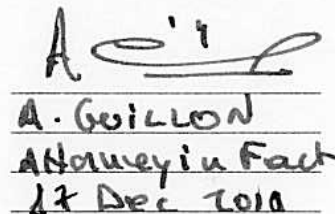 A. GUILLON
Attorney in Fact
17 Dec 2010